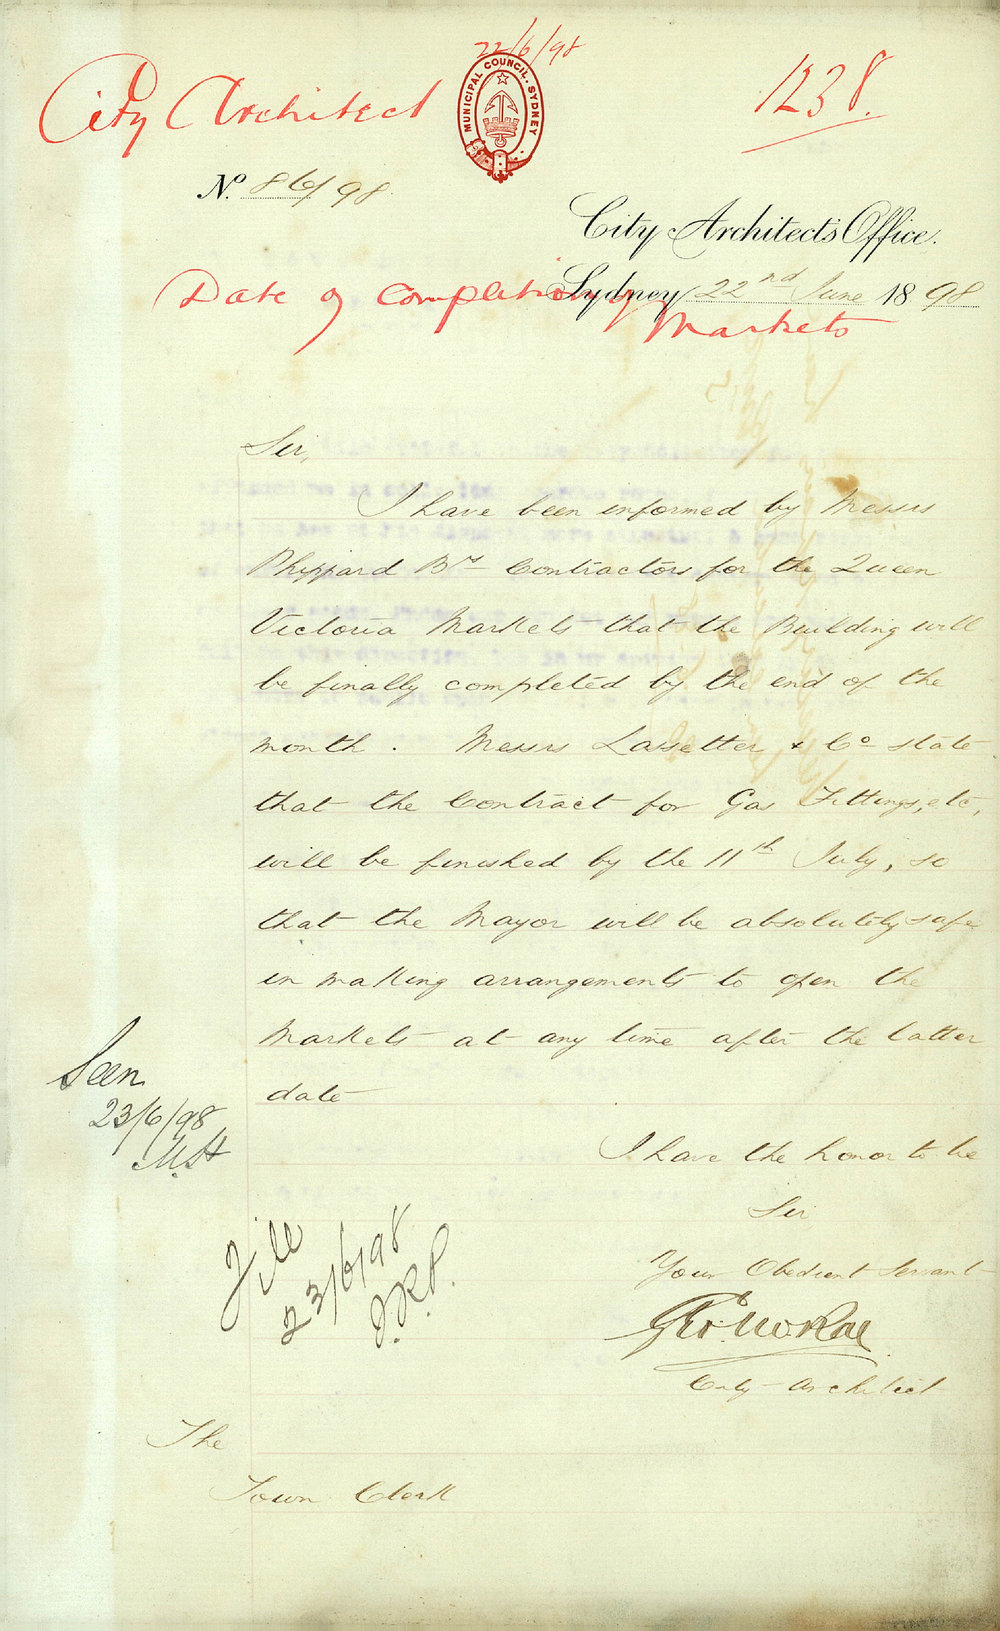 22/6/98
City Architect
MUNICIPAL COUNCIL. SYDNEY
1238.
No. 86/98
City Architect's Office.
Sydney 22nd June 1898
Date of completion of
Markets
Sir,
I have been informed by Messrs
Phippard Brs Contractors for the Queen
Victoria Markets that the Building will
be finally completed by the end of the
month. Messrs Lassetter & Co state
that the Contract for Gas Fittings, etc,
will be finished by the 11th July, so
that the Mayor will be absolutely safe
in making arrangements to open the
Markets at any time after the latter
date
Seen
23/6/98
M.H
I have the honor to be
Sir
Your Obedient Servant
Geo. McRae
City Architect
File
23/6/98
J.R.P.
The
Town Clerk